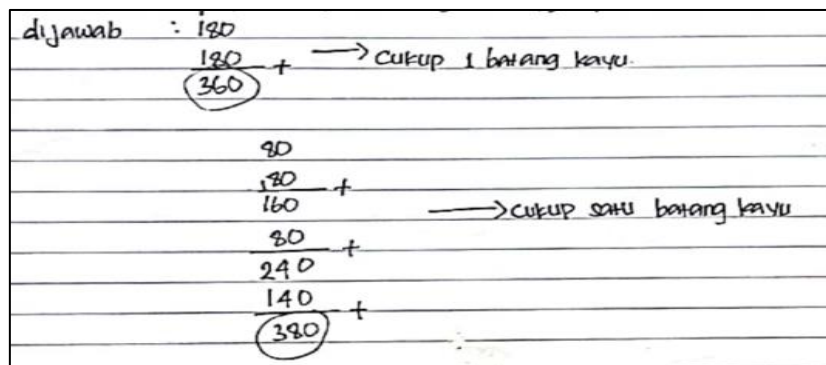 dijawab : 180
180 + → cukup 1 batang kayu.
360
80
80 +
160
→ cukup satu batang kayu
80 +
240
140 +
380